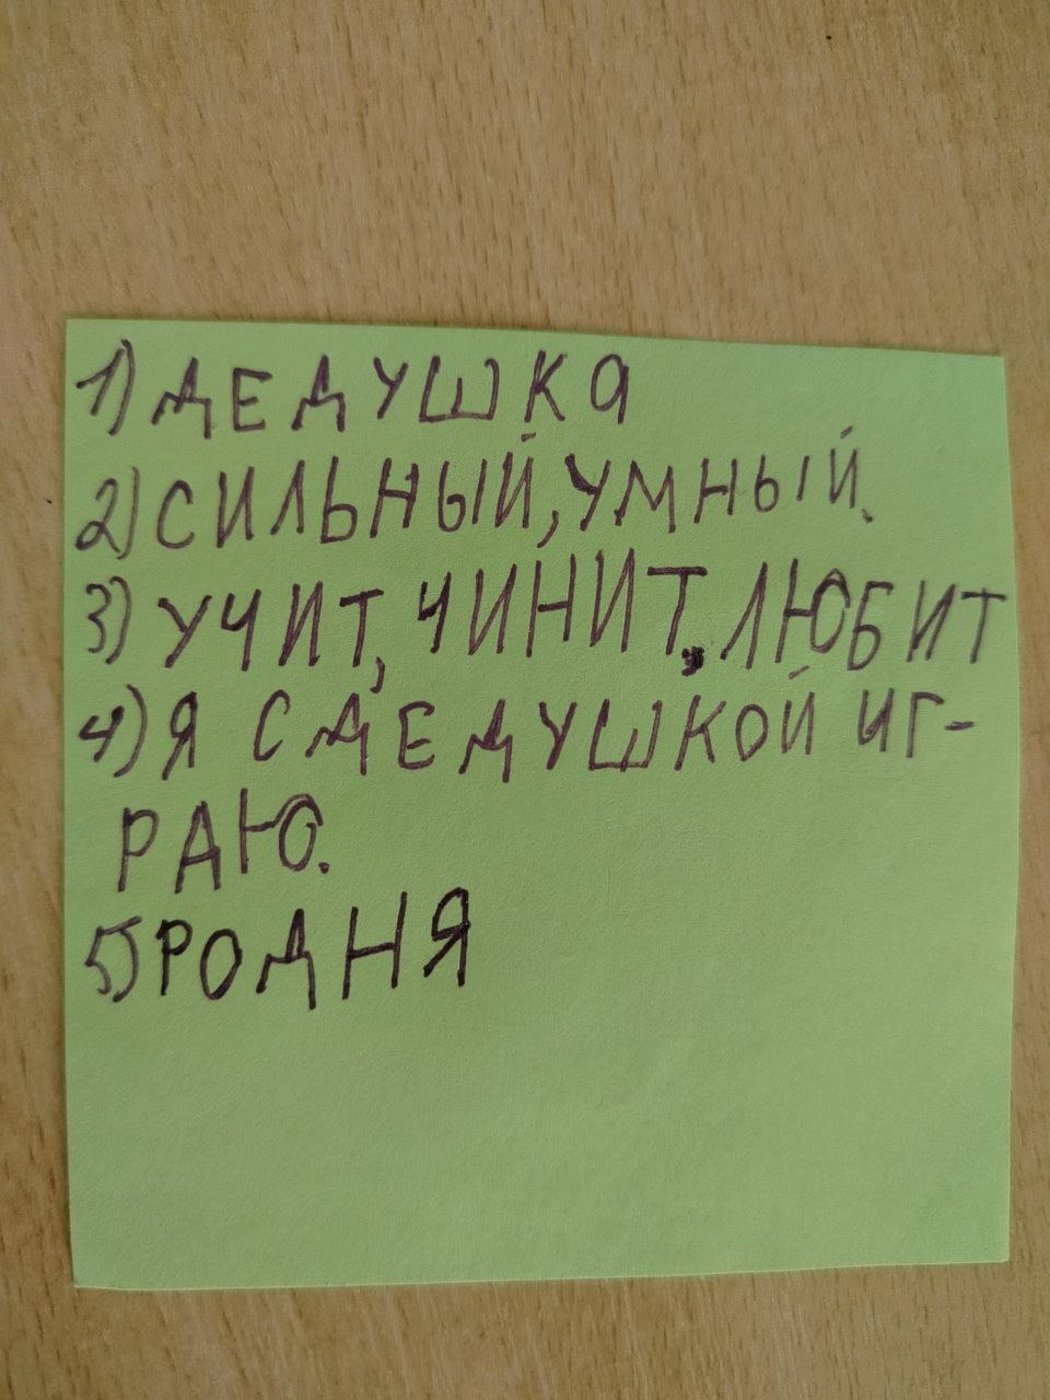 1) ДЕДУШКА
2) СИЛЬНЫЙ, УМНЫЙ.
3) УЧИТ, ЧИНИТ, ЛЮБИТ
4) Я С ДЕДУШКОЙ ИГ-
РАЮ.
5) РОДНЯ